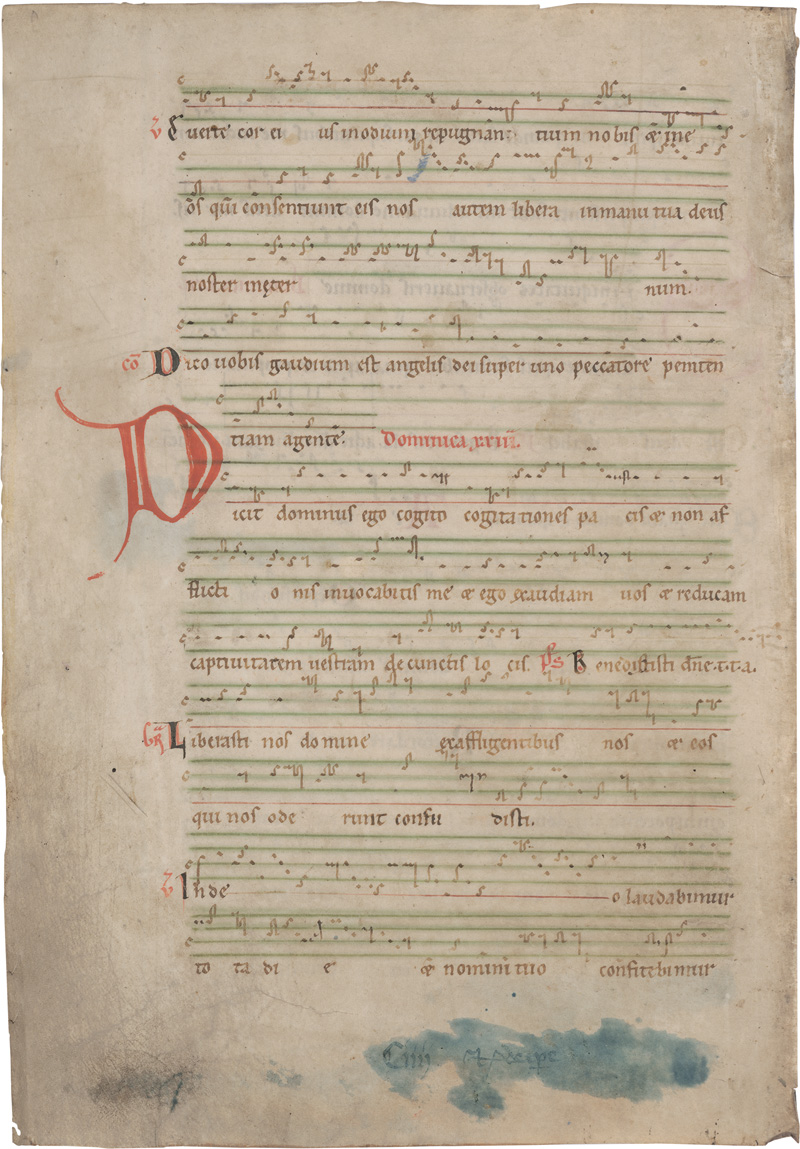 uerte cor ei us in odium repugnan tium nobis & me
os qui consentiunt eis nos autem libera in manu tua deus
noster in ęter num.
co Dico uobis gaudium est angelis dei super uno peccatore peniten
tiam agente. Dominica xxiii.
Dicit dominus ego cogito cogitationes pa cis & non af
flicti o nis inuocabitis me & ego exaudiam uos & reducam
captiuitatem uestram de cunctis lo cis. ps Benedixisti dne.t.t.a.
Liberasti nos domine ex affligentibus nos & eos
qui nos ode runt confu disti.
In de o laudabimur
to ta di e & nomini tuo confitebimur